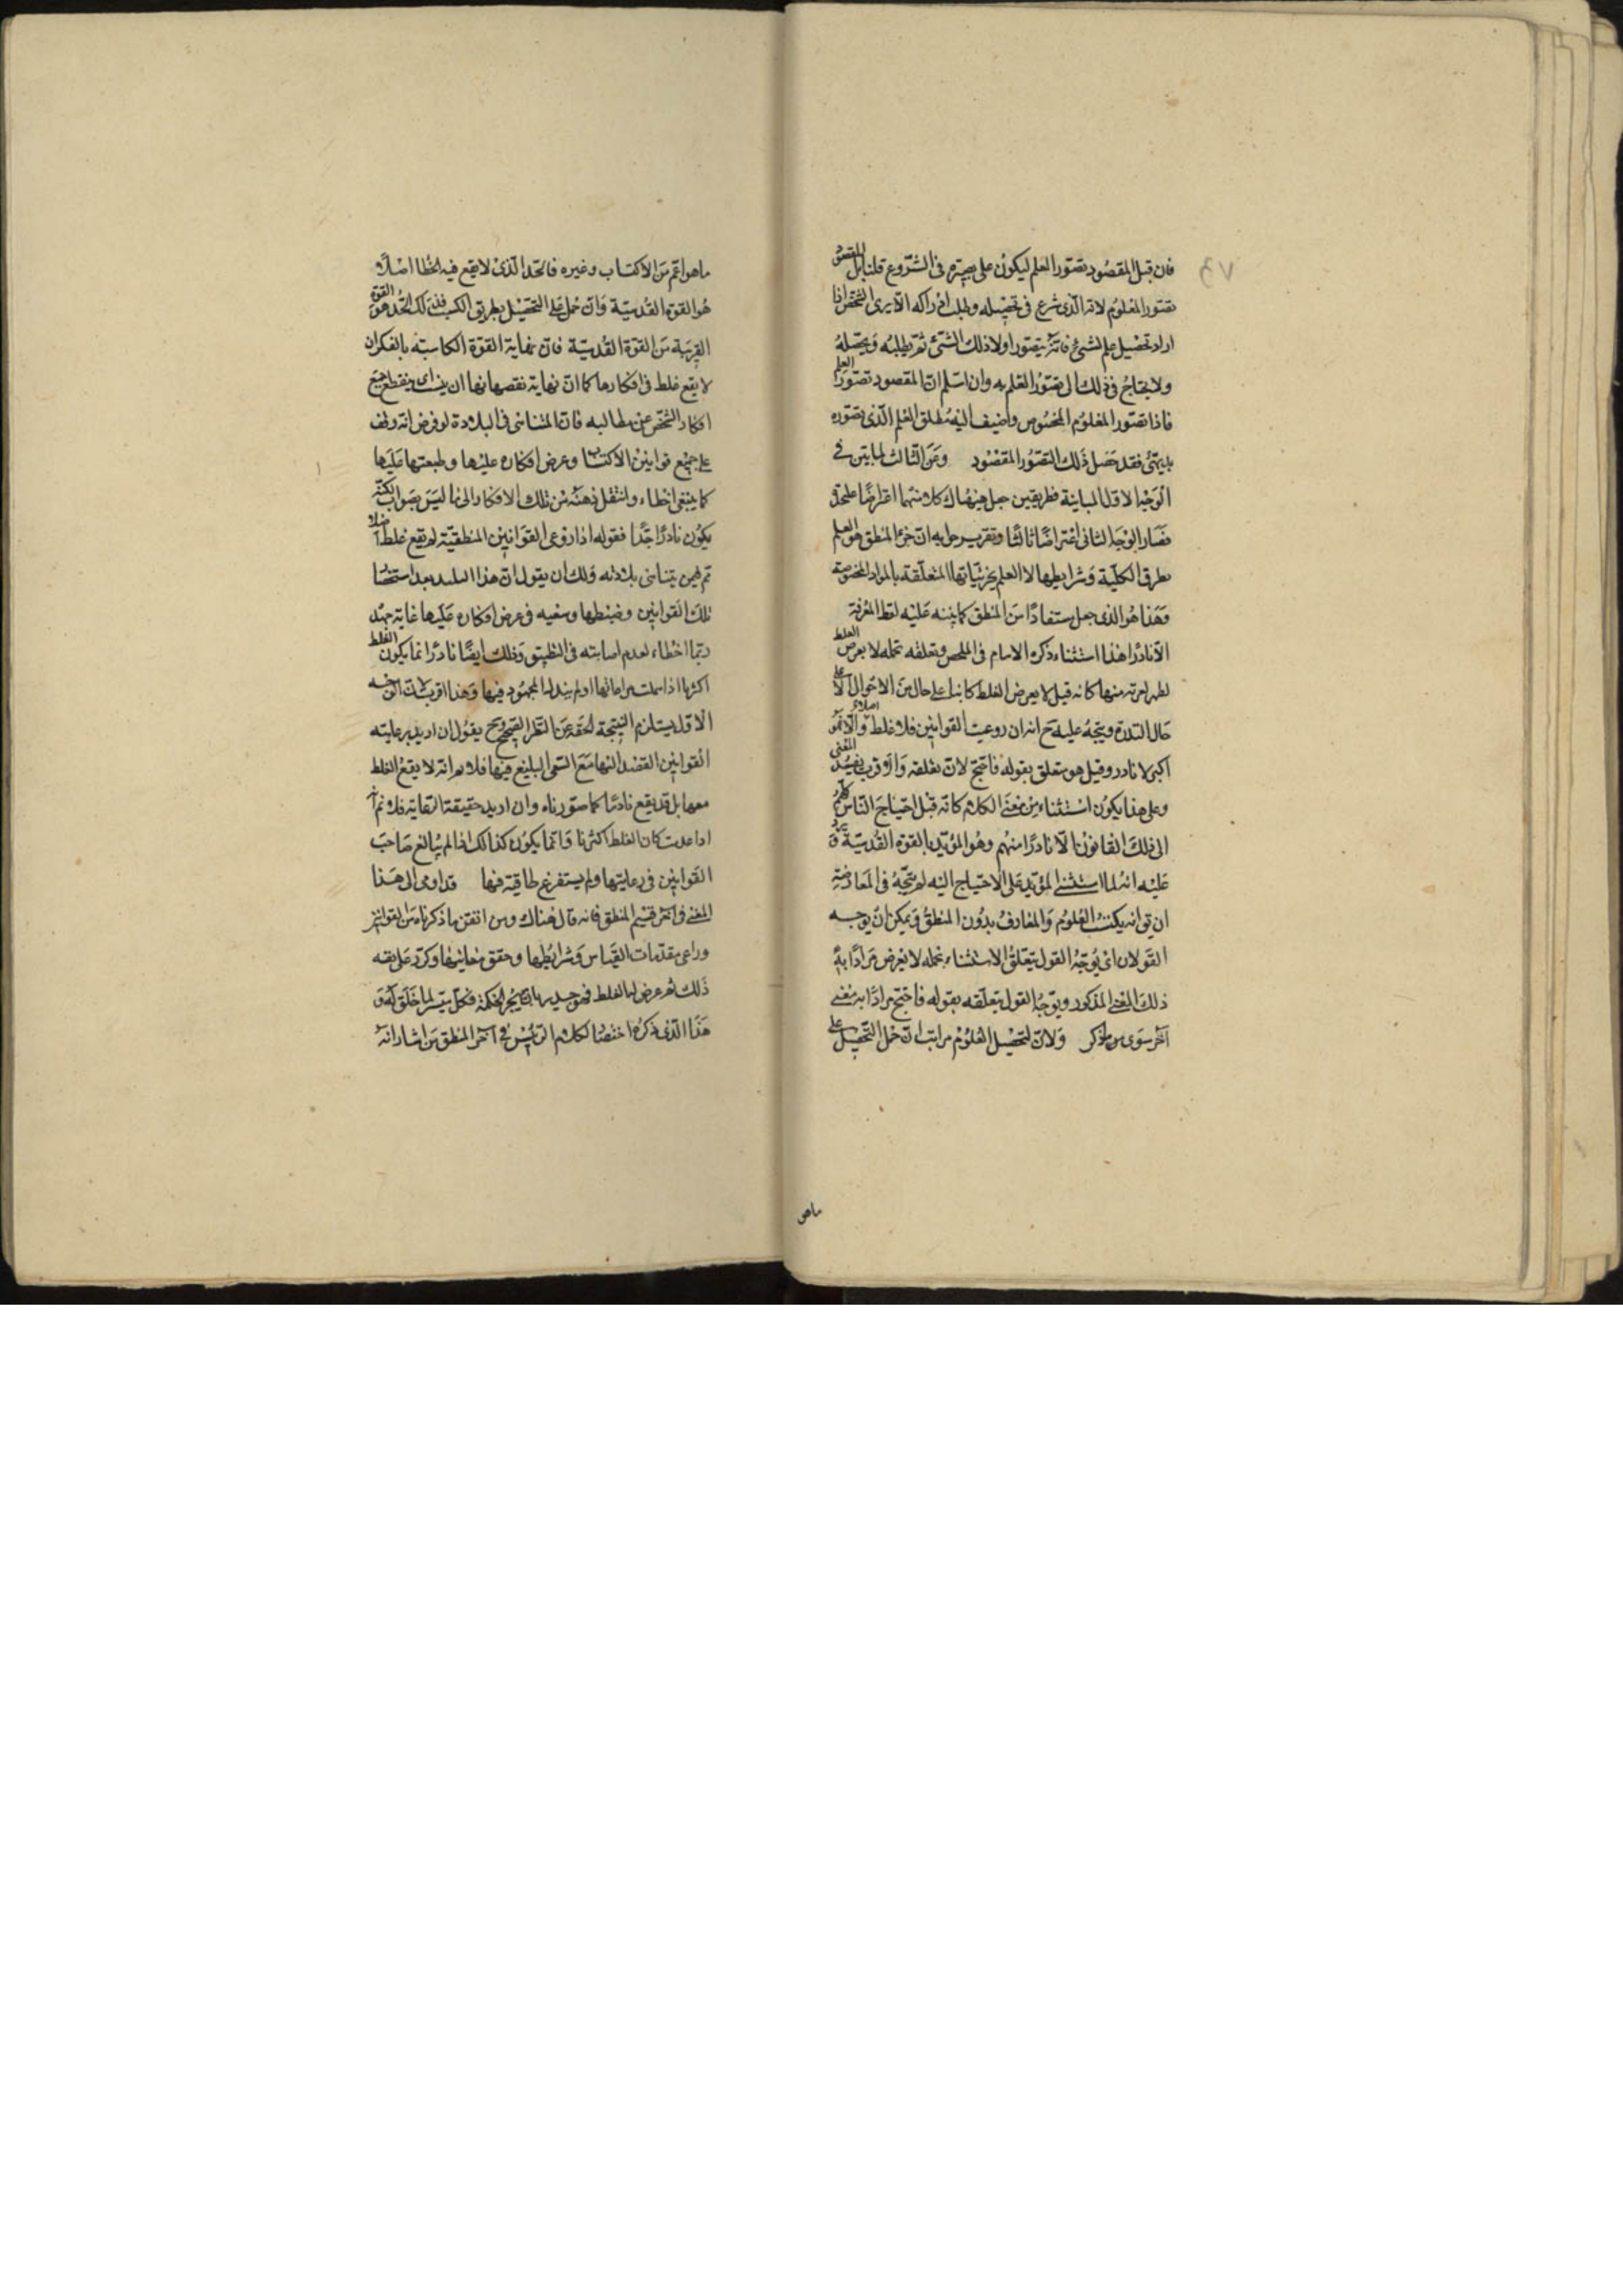 فان قيل المقصود بتصور العلم ليكون على بصيرة في الشروع قلنا بل المقصود
تصور المعلوم لانه الذى شرع فى تحصيله وطلب ادراكه الا يرى الشخص اذا
اراد تحصيل علم لشئ فانه يتصور اولا ذلك الشئ ثم يطلبه ويحصله
ولا يحتاج فى ذلك الى تصور العلم به وان اسلم ان المقصود تصور العلم
فاذا تصور المعلوم المخصوص واضيف اليه مطلق العلم الذى تصوره
بديهى فقد حصل ذلك التصور المقصود وعن الثالث لما بين فى
الوجه الاول المباينة فطريقين جعل هيهنا كلا منهما اعتراضا على حدة
فصار الوجه الثانى اعتراضا ثالثا وتقرير حله ان جزء المنطق هو العلم
بطرق الكلية وشرايطها لا العلم بجزئياتها المتعلقة بالمواد المخصوصة
وهذا هو الذى جعل مستفادا من المنطق كما ينبه عليه لفظ المعرفة
الا نادرا هذا استثناء ذكره الامام فى الملخص وتعلقه بجمله لا يعرض الغلط
منها كانه قيل لا يعرض الغلط كائنا على حال من الاحوال الا على
حال الندرة ويتجه عليه ح انه ان روعيت القوانين فلا غلط اصلا والا فهو
اكبرى لا نادر وقيل هو متعلق بقوله فاحتج لان تعلقه والاقرب يفسد المعنى
وعلى هذا يكون استثناء من معنى الكلام كانه قيل احتياج الناس كلهم
الى ذلك القانون الا نادرا منهم وهو المؤيد بالقوة القدسية ويرد
عليه انه لما استثنى المؤيد على الاحتياج اليه لم يتجه فى المعارضة
ان يق انه يكتسب العلوم والمعارف بدون المنطق ويمكن ان يوجه
القولان اى يوجه القول بتعلق الاستثناء بجمله لا يعرض مرادا به
ذلك المعنى المذكور ويوجه القول بتعلقه بقوله فاحتج مرادا به معنى
اخر سوى ما ذكر ولان لتحصيل العلوم مراتب ان حمل التحصيل على
ماهو
ما هو اعم من الاكتساب وغيره فالحد الذى لا يقع فيه الخطا اصلا و
هو القوة القدسية وان حمل على التحصيل بطريق الكسب فذلك الحد هو القوة
القريبة من القوة القدسية فان نهاية القوة الكاسبة بالفكر ان
لا يقع غلط فى افكارها كما ان نهاية نقصها نها ان ينقطع جميع
افكار الشخص عن مطالبه فان المتناهى فى البلادة لو فرض انه وقف
على جميع قوانين الاكتساب وعرض افكاره عليها وطبقها عليها
كما ينبغى اخطاء وانتقل ذهنه من تلك الافكار الى ما ليس بصواب لكنه
يكون نادرا جدا فقوله اذا روعى القوانين المنطقية لم يقع غلط اصلا
تم فيمن يتناهى بلادته ولك ان يقول ان هذا البليد بعد استحضار
تلك القوانين وضبطها وسعيه فى عرض افكاره عليها غاية جهد
ربما اخطاء لعدم اصابته فى التطبيق وذلك ايضا نادر انما يكون الغلط
اكثريا اذا مراعاتها او لم يبذل المجهود فيها وهذا اقرب لان الوجه
الاول يستلزم النتيجة الحقة عن النظر الصحيح وح يقول ان اريد برعايته
القوانين القصد اليها مع السعى البليغ فيها فلا نم انه لا يقع الغلط
معها بل قد يقع نادرا كما صورناه وان اريد حقيقة الرعاية فلا نم انه
اذا عدمت كان الغلط اكثريا وانما يكون كذلك اذا لم يبالغ صاحب
القوانين فى رعايتها ولم يستفرغ طاقته فيها قد اومى الى هذا
المعنى فى اخر قسم المنطق فانه قال هناك ومن اتقن ما ذكرناه من القوانين
وراعى مقدمات القياس وشرايطها وحقق معانيها وكرر على نفسه
ذلك ثم عرض له الغلط فهو جدير بان يهجر الحكمة فكل ميسر لما خلق له و
هذا الذى ذكره اختصار لكلام الرئيس فى اخر المنطق من اشاراته